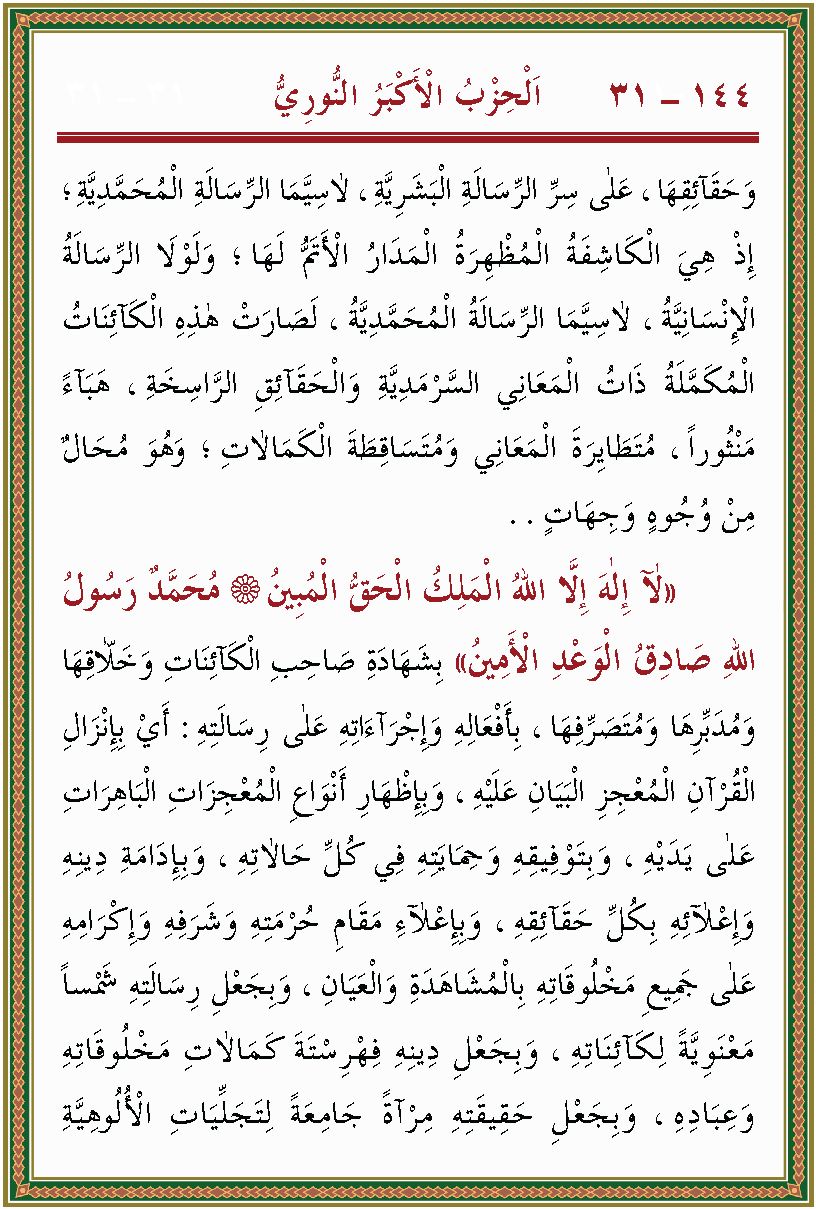 ١٤٤ – ٣١ اَلْحِزْبُ الْأَكْبَرُ النُّورِيُّ
وَحَقَآئِقِهَا ، عَلٰى سِرِّ الرِّسَالَةِ الْبَشَرِيَّةِ ، لاٰسِيَّمَا الرِّسَالَةِ الْمُحَمَّدِيَّةِ ؛
إِذْ هِيَ الْكَاشِفَةُ الْمُظْهِرَةُ الْمَدَارُ الْأَتَمُّ لَهَا ؛ وَلَوْلَا الرِّسَالَةُ
الْإِنْسَانِيَّةُ ، لاٰسِيَّمَا الرِّسَالَةُ الْمُحَمَّدِيَّةُ ، لَصَارَتْ هٰذِهِ الْكَآئِنَاتُ
الْمُكَمَّلَةُ ذَاتُ الْمَعَانِي السَّرْمَدِيَّةِ وَالْحَقَآئِقِ الرَّاسِخَةِ ، هَبَآءً
مَنْثُوراً ، مُتَطَايِرَةَ الْمَعَانِي وَمُتَسَاقِطَةَ الْكَمَالاٰتِ ؛ وَهُوَ مُحَالٌ
مِنْ وُجُوهٍ وَجِهَاتٍ . .
«لَآ إِلٰهَ إِلَّا اللهُ الْمَلِكُ الْحَقُّ الْمُبِينُ ۞ مُحَمَّدٌ رَسُولُ
اللهِ صَادِقُ الْوَعْدِ الْأَمِينُ» بِشَهَادَةِ صَاحِبِ الْكَآئِنَاتِ وَخَلَّاقِهَا
وَمُدَبِّرِهَا وَمُتَصَرِّفِهَا ، بِأَفْعَالِهِ وَإِجْرَآءَاتِهِ عَلٰى رِسَالَتِهِ : أَيْ بِإِنْزَالِ
الْقُرْآنِ الْمُعْجِزِ الْبَيَانِ عَلَيْهِ ، وَبِإِظْهَارِ أَنْوَاعِ الْمُعْجِزَاتِ الْبَاهِرَاتِ
عَلٰى يَدَيْهِ ، وَبِتَوْفِيقِهِ وَحِمَايَتِهِ فِي كُلِّ حَالاٰتِهِ ، وَبِإِدَامَةِ دِينِهِ
وَإِعْلَآئِهِ بِكُلِّ حَقَآئِقِهِ ، وَبِإِعْلَآءِ مَقَامِ حُرْمَتِهِ وَشَرَفِهِ وَإِكْرَامِهِ
عَلٰى جَمِيعِ مَخْلُوقَاتِهِ بِالْمُشَاهَدَةِ وَالْعَيَانِ ، وَبِجَعْلِ رِسَالَتِهِ شَمْساً
مَعْنَوِيَّةً لِكَآئِنَاتِهِ ، وَبِجَعْلِ دِينِهِ فِهْرِسْتَةَ كَمَالاٰتِ مَخْلُوقَاتِهِ
وَعِبَادِهِ ، وَبِجَعْلِ حَقِيقَتِهِ مِرْآةً جَامِعَةً لِتَجَلِّيَاتِ الْأُلُوهِيَّةِ